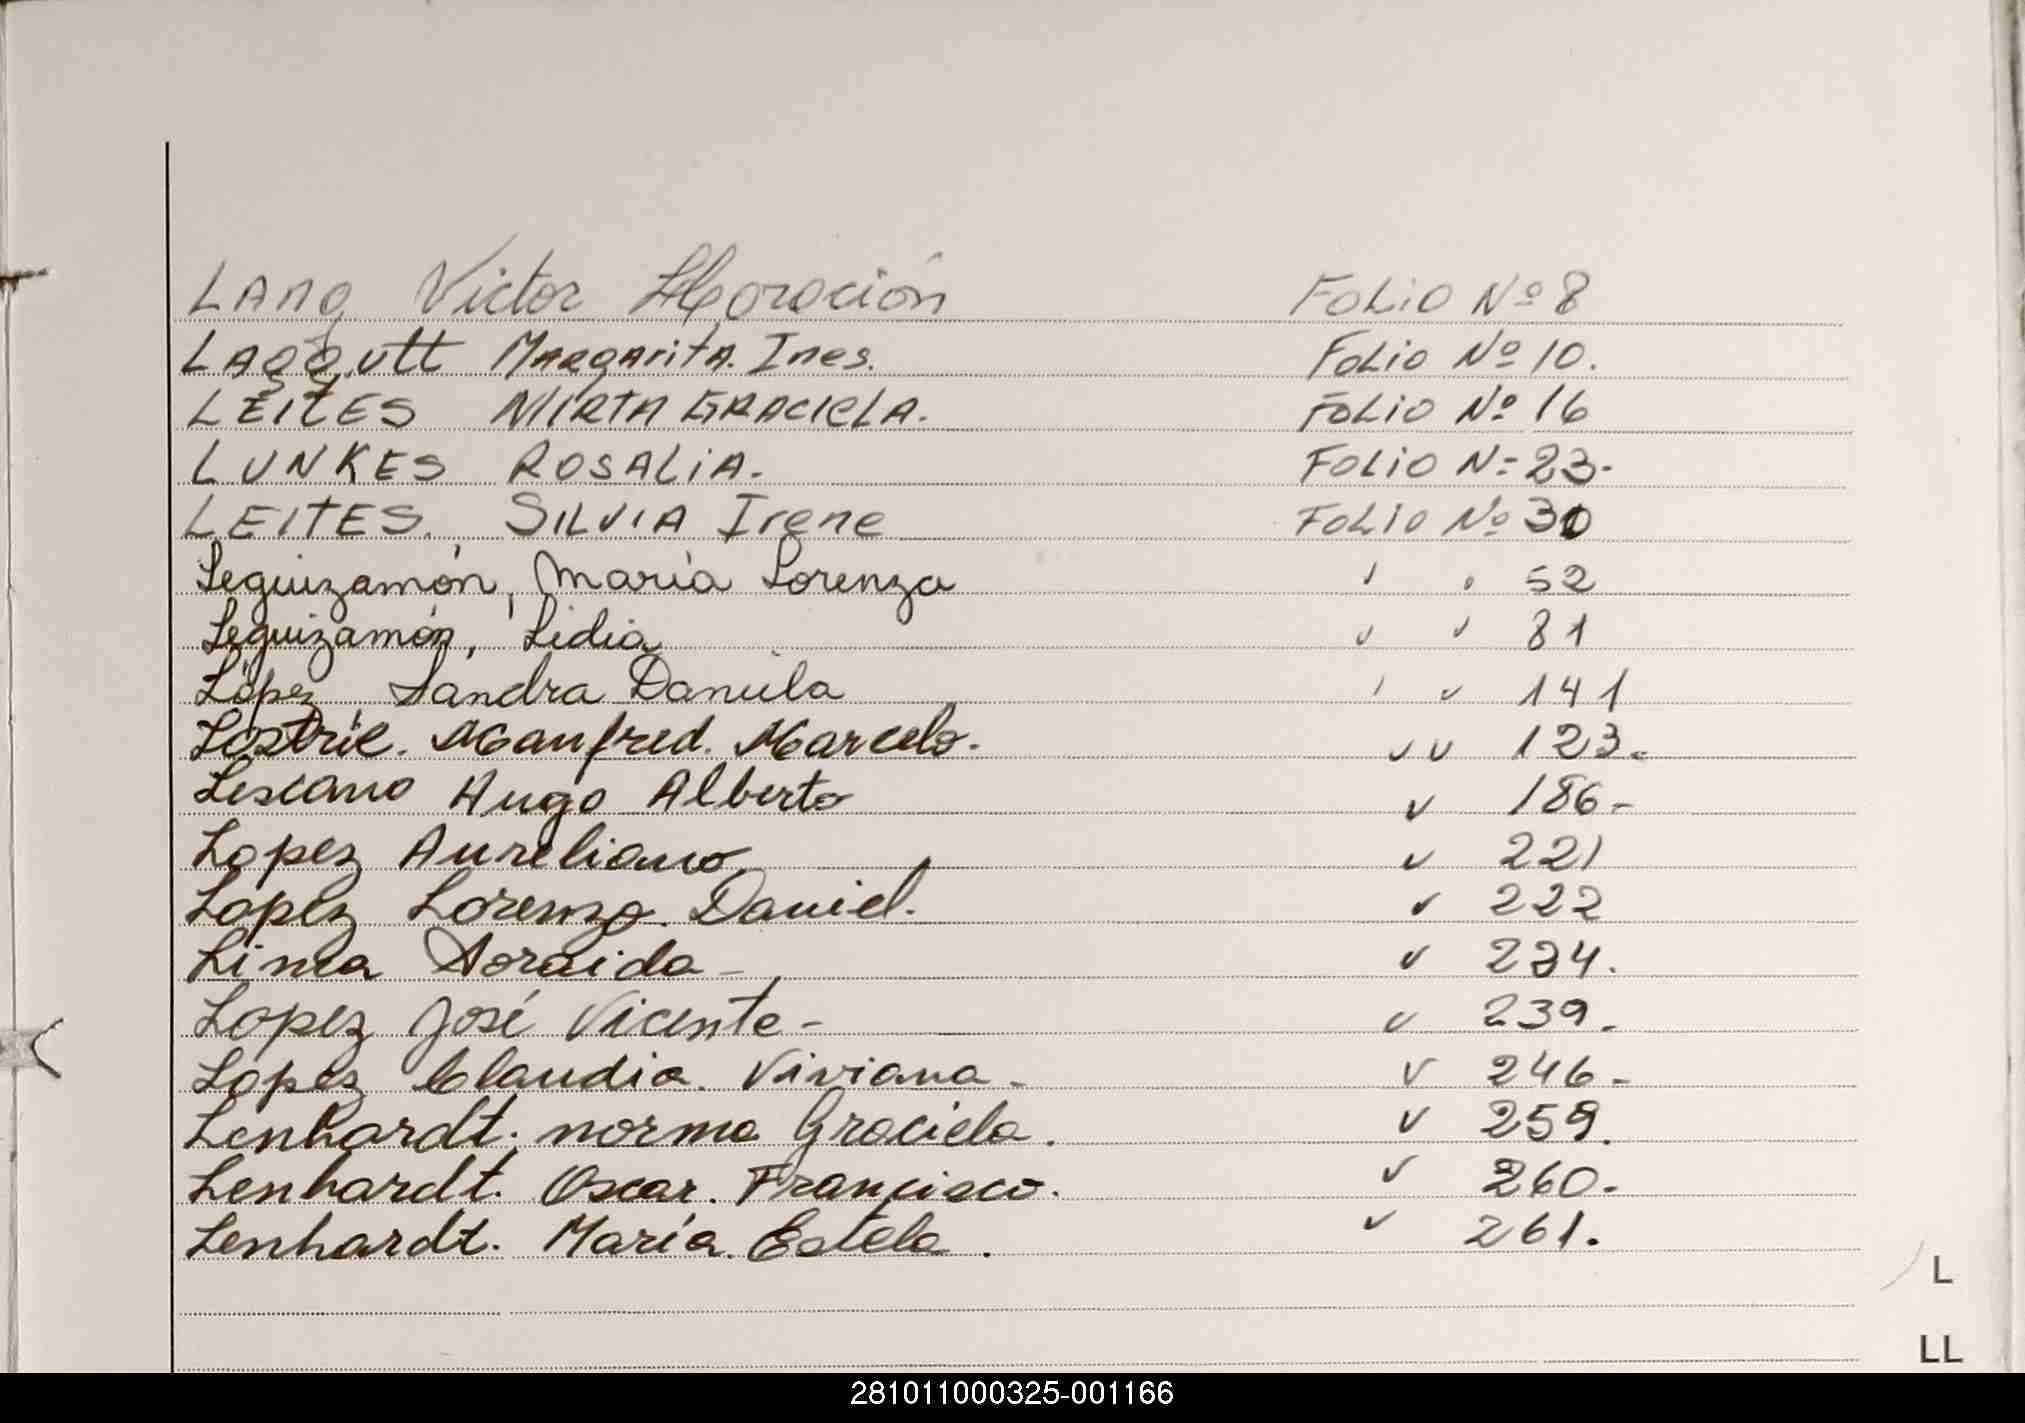 Lang Victor Horación Folio Nº 8
Laggutt Margarita. Ines. Folio Nº 10.
LEITES MIRTA GRACIELA. Folio Nº 16
LUNKES ROSALIA. Folio Nº 23.
LEITES. SILVIA Irene Folio Nº 30
Leguizamón, María Lorenza " " 52
Leguizamón, Lidia " " 81
López Sandra Daniela " " 141
Manfred. Marcelo. " " 123.
Lescano Hugo Alberto " 186-
Lopez Aureliano " 221
Lopez Lorenzo. Daniel. " 222
Soraida - " 234.
Lopez José Vicente - " 239.
Lopez Claudia. Viviana - " 246-
Lenhardt. norma Graciela. " 259.
Lenhardt. Oscar. Francisco. " 260.
Lenhardt. María. Estela. " 261.
L
LL
281011000325-001166